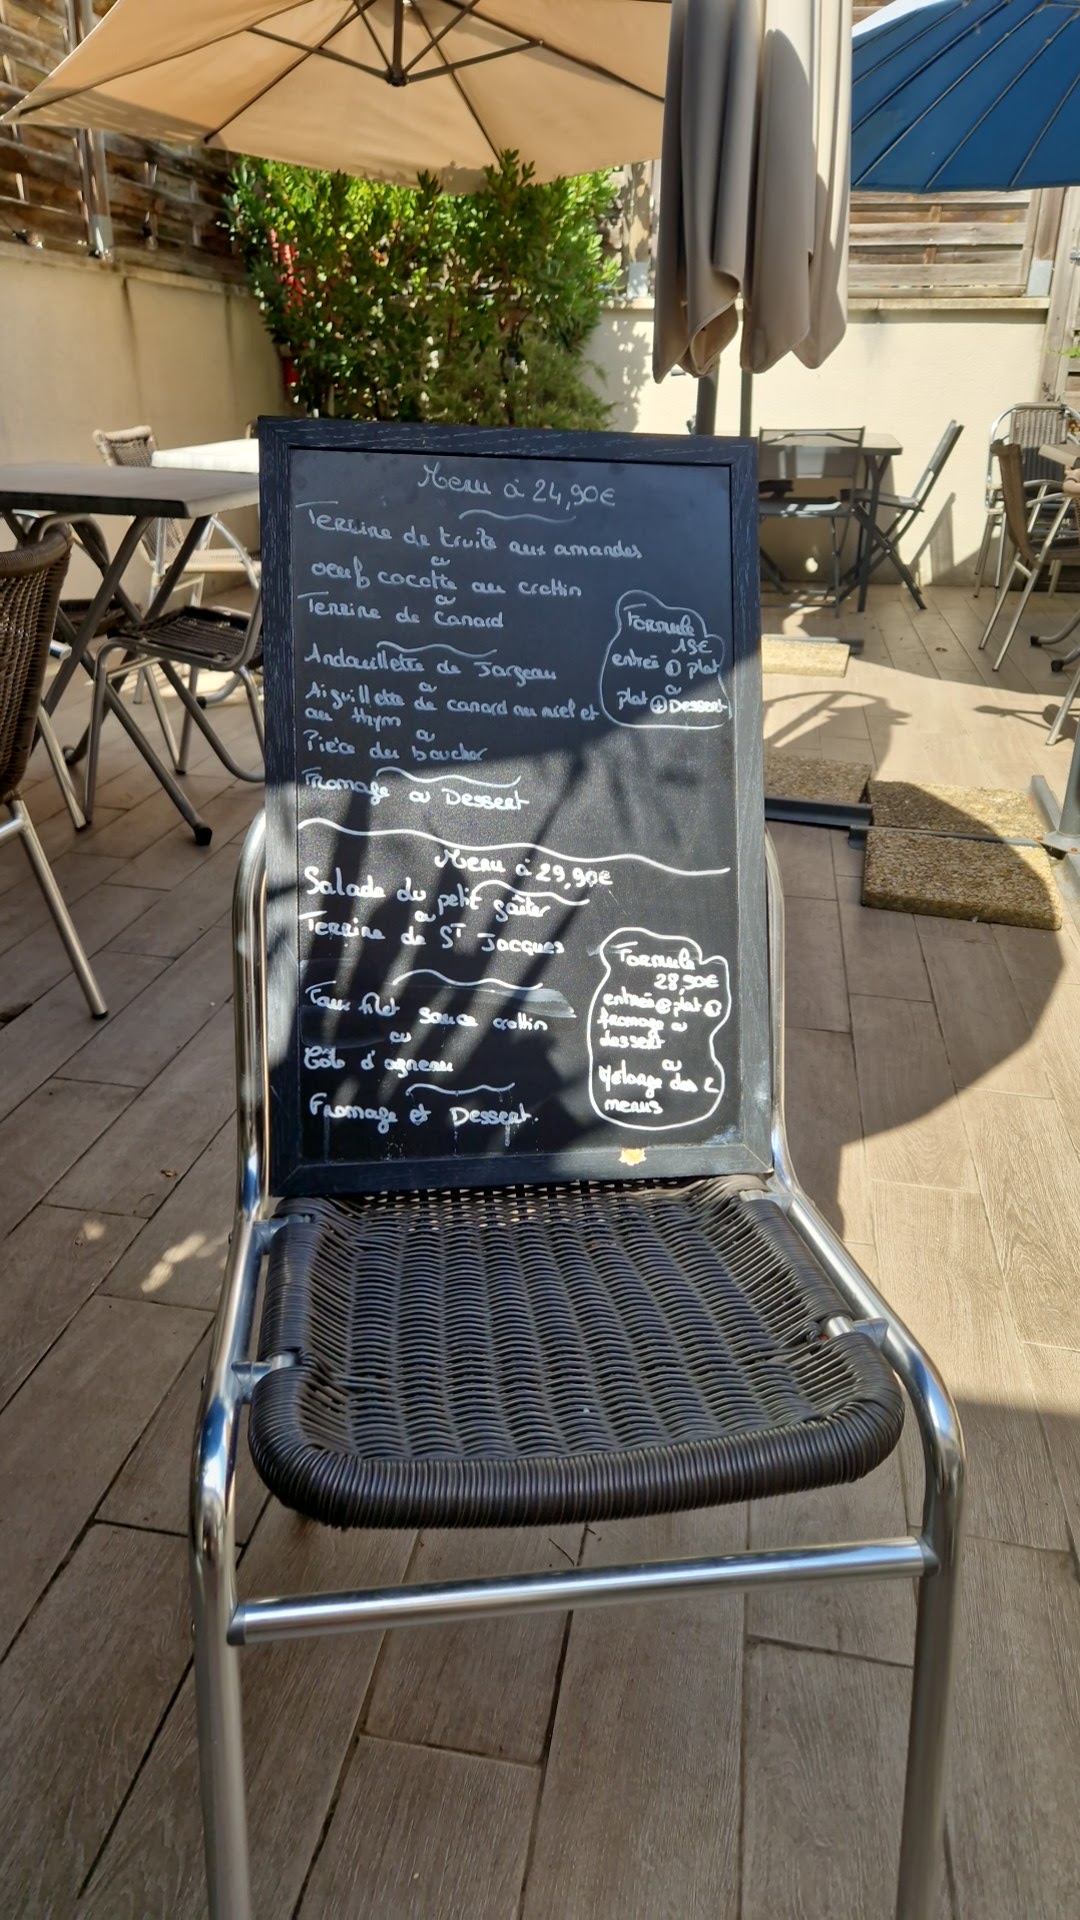 Menu à 24,90€
Terrine de truite aux amandes
ou
oeuf cocotte au crottin
ou
Terrine de Canard
Andouillette de Jargeau
ou
Aiguillette de canard au miel et
au thym
ou
Pièce du boucher
Fromage ou Dessert
Formule
entrée + plat
ou
plat + Dessert
Menu à 29,90€
Salade du petit goûter
ou
Terrine de ST Jacques
Faux filet sauce crottin
ou
d'agneau
Fromage et Dessert.
Formule
28,90€
entrée + plat +
fromage ou
dessert
ou
Mélange des 2
menus